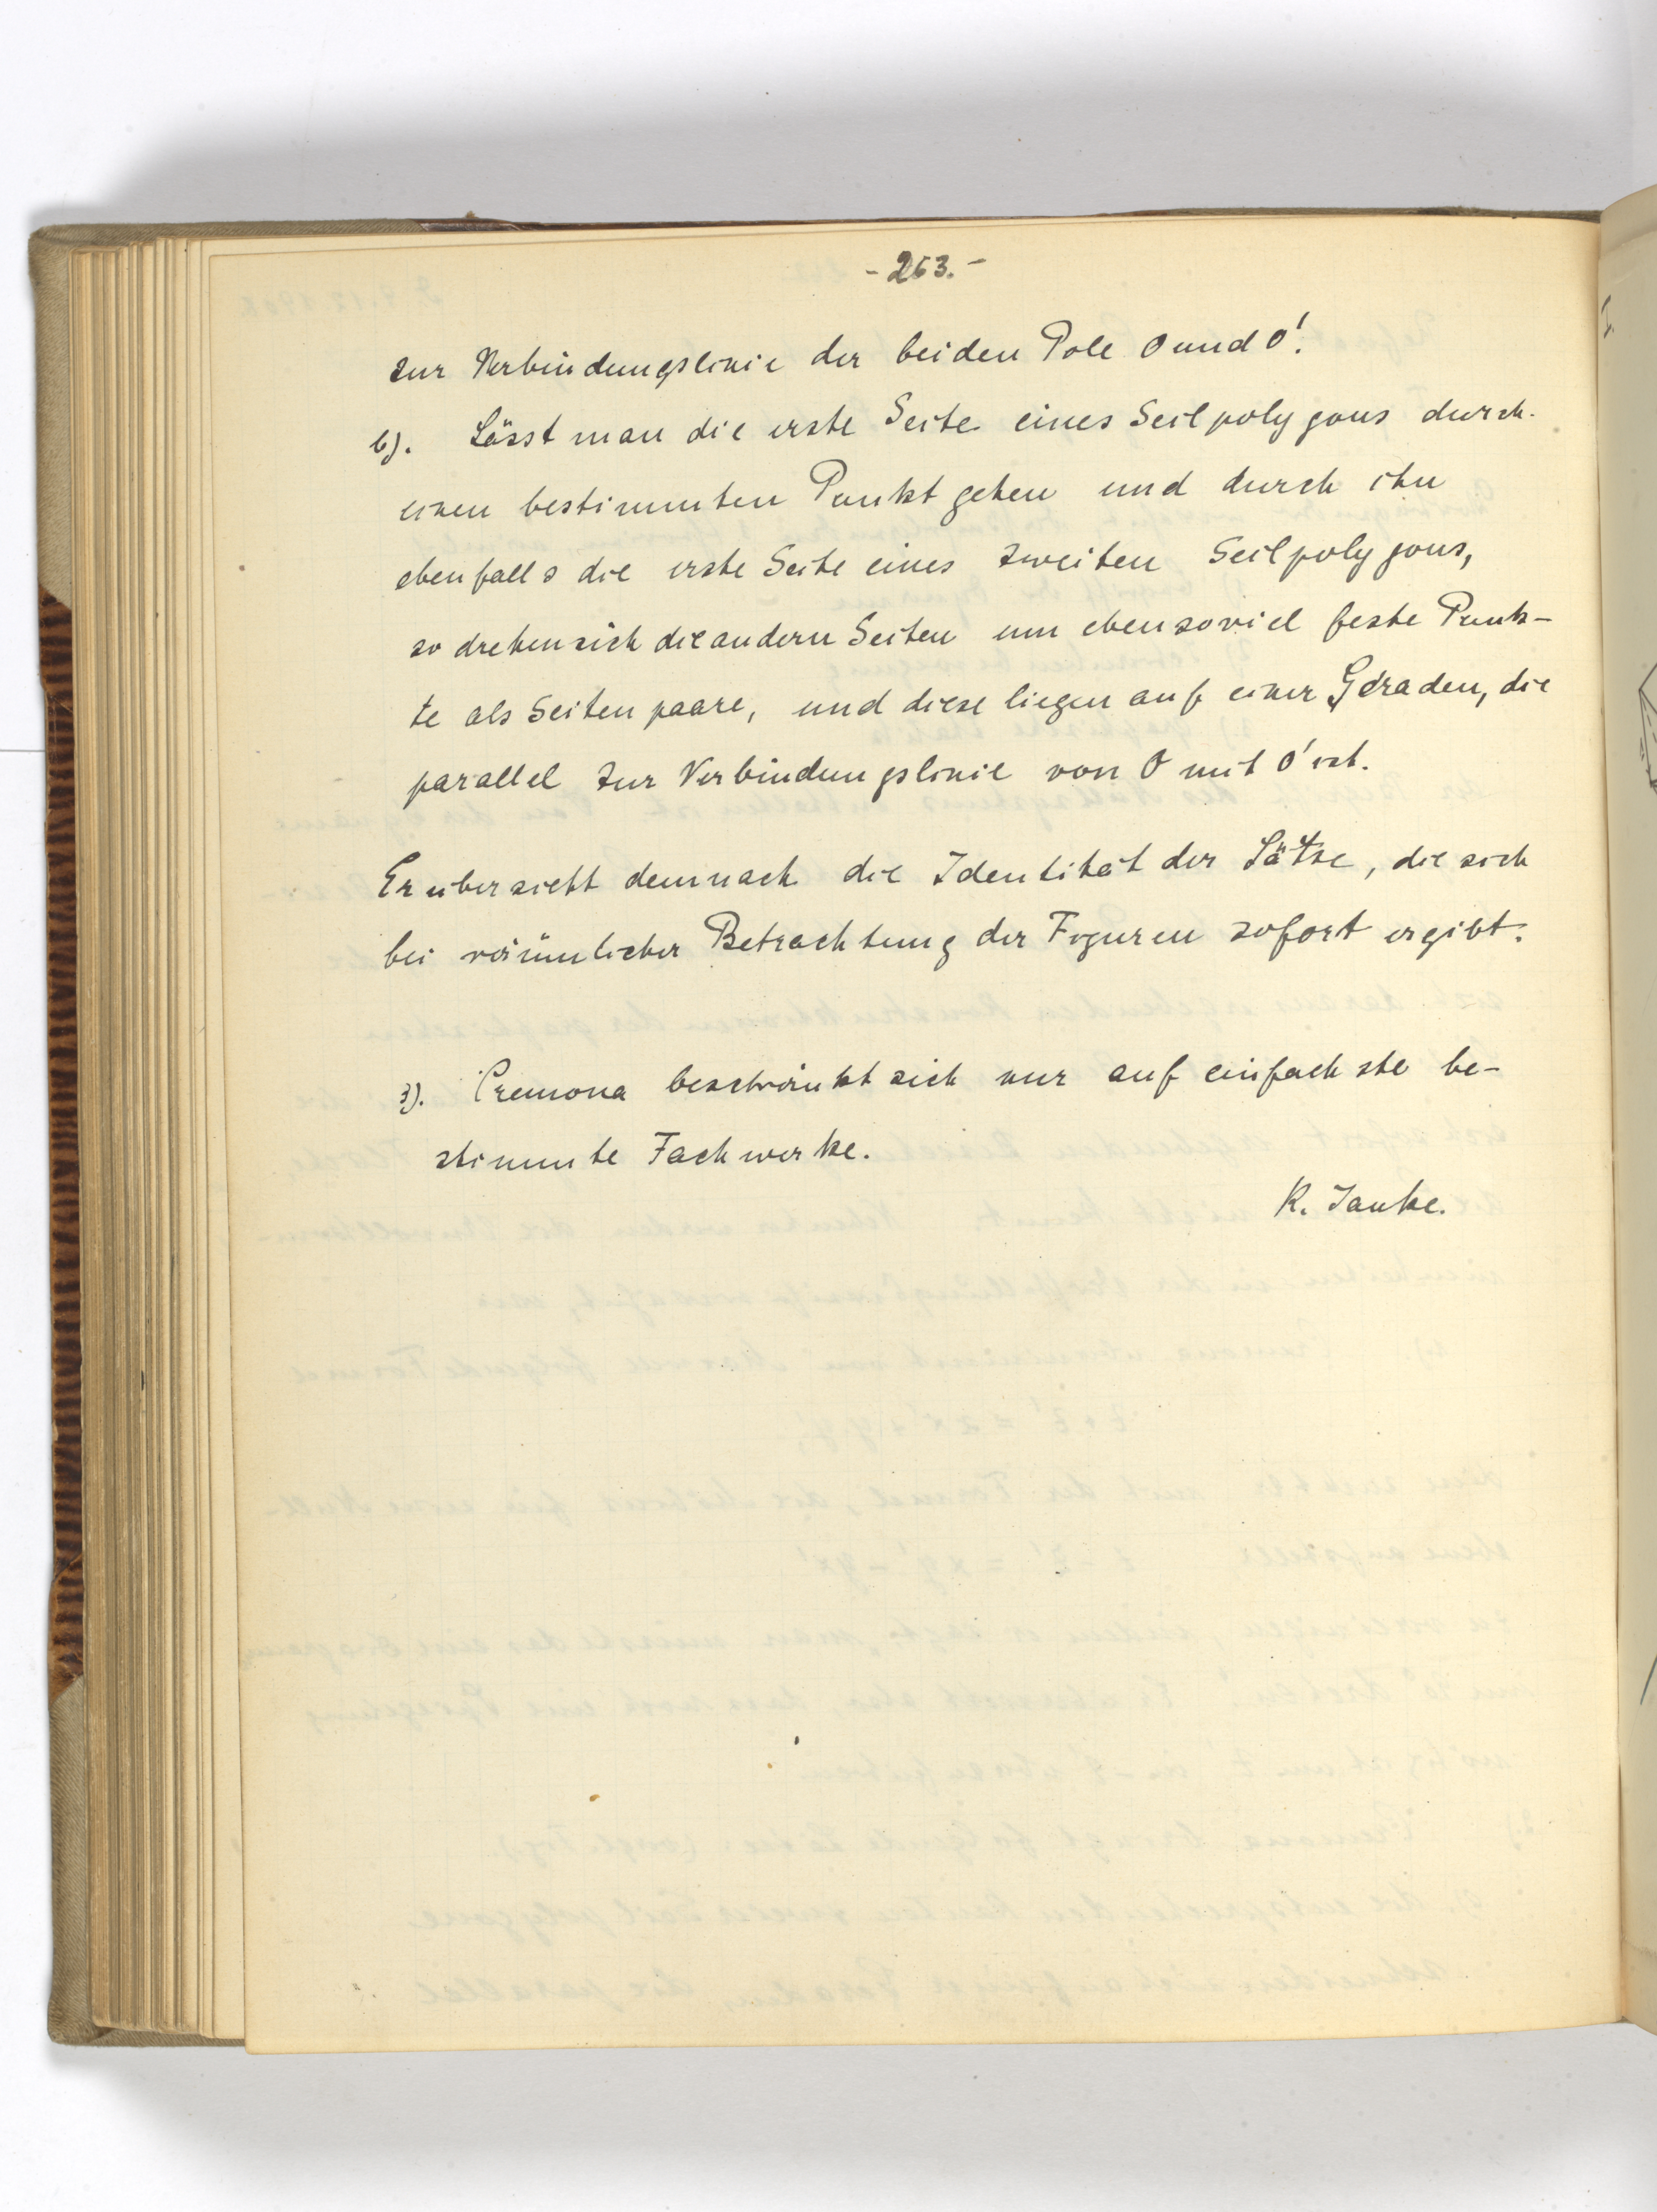 - 263. -
zur Verbindungslinie der beiden Pole O und O'.
b). Lässt man die erste Seite eines Seilpolygons durch
einen bestimmten Punkt gehen und durch ihn
ebenfalls die erste Seite eines zweiten Seilpolygons,
so drehen sich die andern Seiten um ebensoviel feste Punk-
te als Seitenpaare, und diese liegen auf einer Geraden, die
parallel zur Verbindungslinie von O mit O' ist.
Er übersieht demnach die Identität der Sätze, die sich
bei räumlicher Betrachtung der Figuren sofort ergibt.
3). Cremona beschränkt sich nur auf einfachste be-
stimmte Fachwerke.
K. Janke.